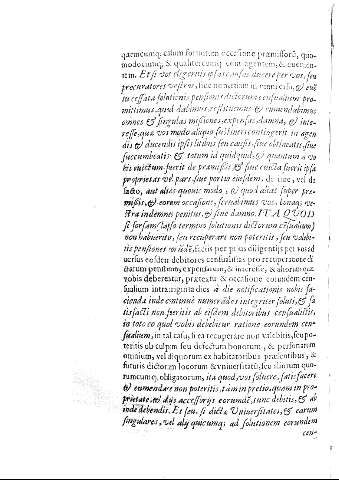 quæmcumq; casum fortuitum occasione præmissorũ, quo-
modocumq; & qualitercumq; cont agentem, & euenien-
tem. Et si vos elegeritis ipsas causas ducere per vos, seu
procuratores vestros, hoc non
solutionis pensionis debitorum censualium pro-
mittimus quod dabimus restituemus & emendabimus
omnes & singulas missiones, expensas, damna, & inte-
resse, quæ vos modo aliquo sustinere contingerit in agen
dis & ducendis ipsis litibus seu causis, siue obtineatis, siue
succumbatis: & totum id quidquid, & quantum a vo
bis euictum fuerit de præmissis & siue euicta fuerit ipsa
proprietas vel pars, siue fuerit eiusdem, de iure, vel de
facto, aut alias quouis modo, & quod alias super præ-
missis, & eorum occasione, seruabimus vos, bonaq; ve-
stra indemnes penitus, & sine damno. ITA QUOD
si forsan (lapso termino solutionis dictorum cẽsualium)
non habueritis, seu recuperare non poteritis, seu valebi-
tis pensiones
uersus eosdem debitores censualistas pro recuperatione di-
ctarum pensionum, expensarum, & interesse, & aliorum quæ
vobis deberentur, prætextu & occasione eorundem cen-
sualium intra triginta dies à die notificationis nobis fa-
cienda inde continuè numerãdos integriter soluti, & sa
tisfacti non fueritis ab eisdem debitoribus censualistis,
in toto eo quod vobis debebitur ratione eorundem cen-
sualium, in tali casu, si ea recuperare non valebitis, seu po-
teritis ob culpam seu defectum bonorum, & personarum
omnium, vel aliquorum ex habitatoribus prælentibus, &
futuris dictorum locorum & vniuersitatũ, seu aliorum quo-
rumcumq; obligatorum, ita quod, vos soluere, satisfacere
& emendare non poteritis, tam in pretio, quam in pro-
prietate, & alijs accessorijs eorundẽ, tunc debitis, & ab
inde debendis. Et seu, si dictæ Vniuersitates, & earum
singulares, vel alij quicumq; ad solutionem eorundem
cen-